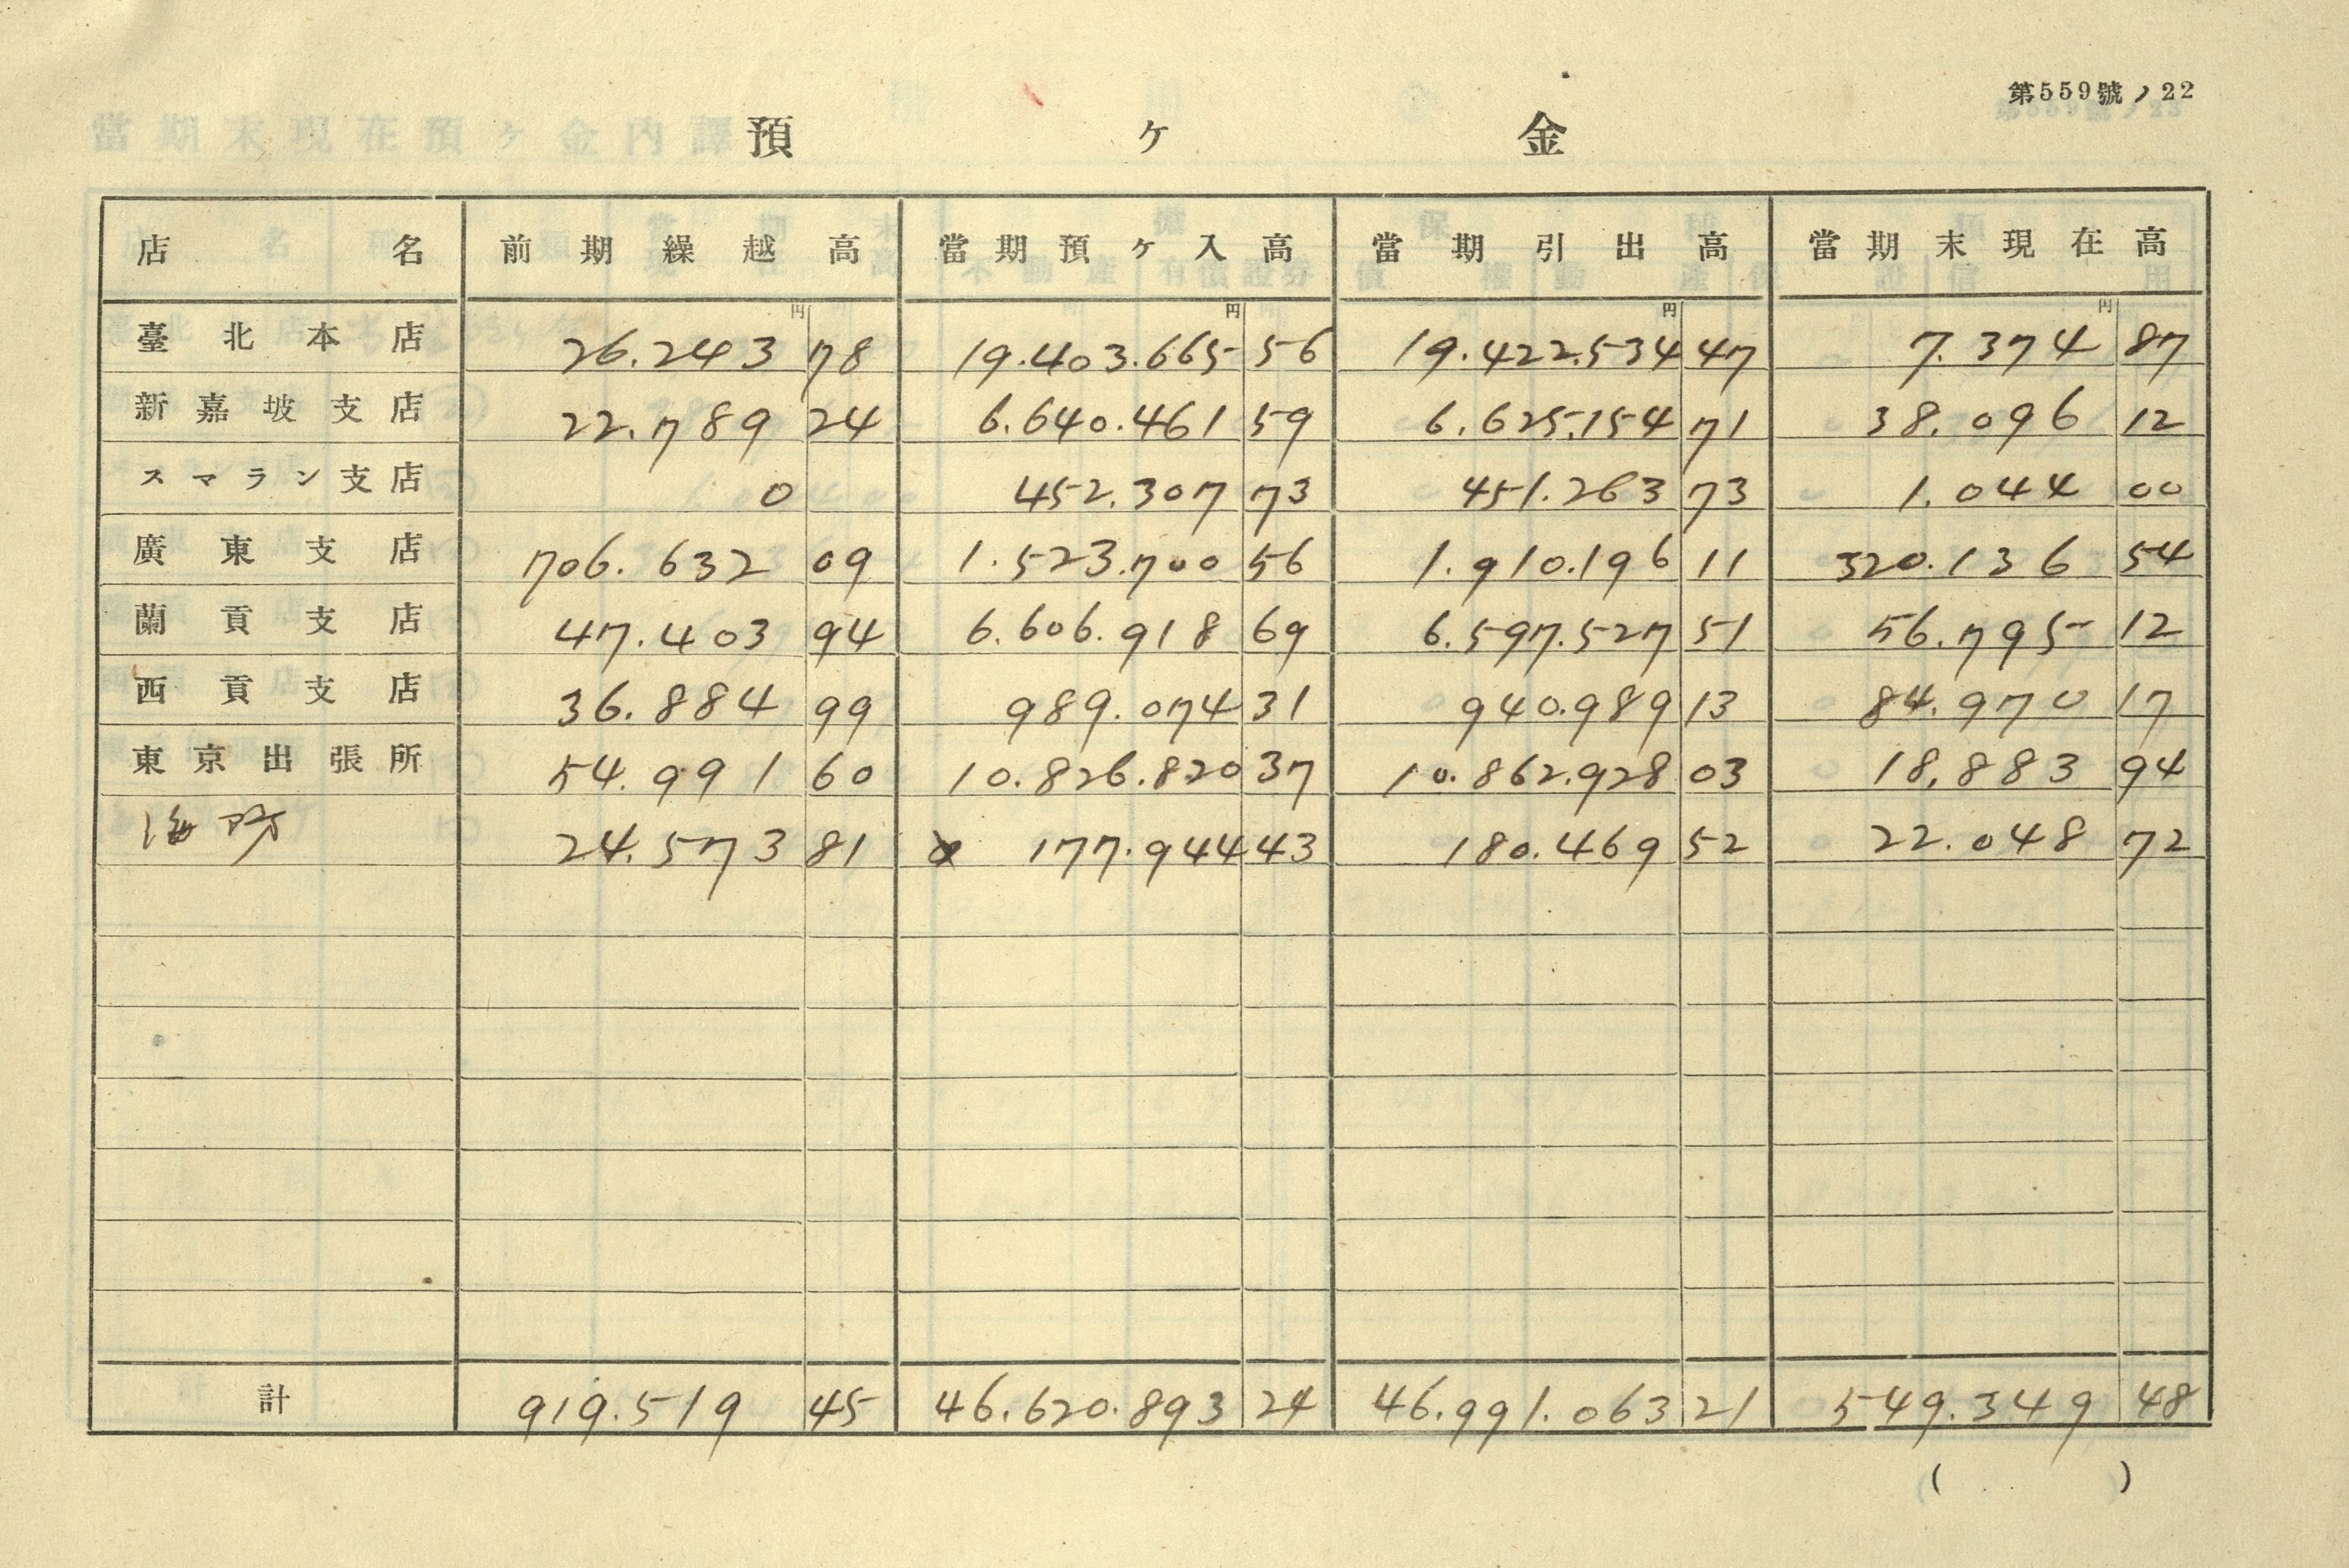 第559號ノ22
預ヶ金
店名 前期繰越高 當期預ヶ入高 當期引出高 當期末現在高
円 円 円 円
臺北本店 26.243 78 19.403.665 56 19.422.534 47 7.374 87
新嘉坡支店 22.789 24 6.640.461 59 6.625.154 71 38.096 12
スマラン支店 0 452.307 73 451.263 73 1.044 00
廣東支店 706.632 09 1.523.700 56 1.910.196 11 320.136 54
蘭貢支店 47.403 94 6.606.918 69 6.597.527 51 56.795 12
西貢支店 36.884 99 989.074 31 940.989 13 84.970 17
東京出張所 54.991 60 10.826.820 37 10.862.928 03 18.883 94
海防 24.573 81 177.944 43 180.469 52 22.048 72
計 919.519 45 46.620.893 24 46.991.063 21 549.349 48
( )